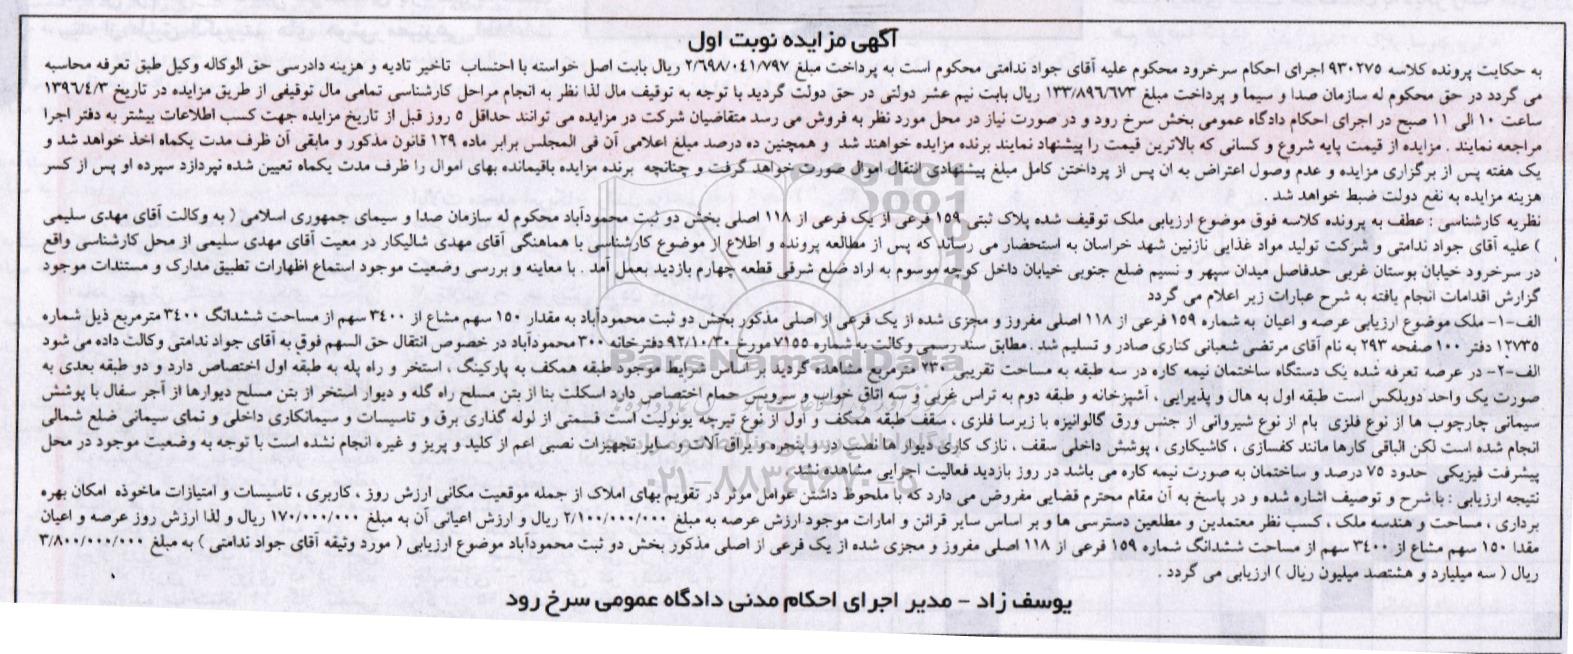 آگهی مزایده نوبت اول
به حکایت پرونده کلاسه ۹۳۰۲۷۵ اجرای احکام سرخرود محکوم علیه آقای جواد ندامتی محکوم است به پرداخت مبلغ ۲/۶۹۸/۰۴۱/۷۹۷ ریال بابت اصل خواسته با احتساب تاخیر تادیه و هزینه دادرسی حق الوکاله وکیل طبق تعرفه محاسبه
می گردد در حق محکوم له سازمان صدا و سیما و پرداخت مبلغ ۱۳۳/۸۹۶/۶۷۳ ریال بابت نیم عشر دولتی در حق دولت گردید با توجه به توقیف مال لذا نظر به انجام مراحل کارشناسی تمامی مال توقیفی از طریق مزایده در تاریخ ۱۳۹۶/۴/۳
ساعت ۱۰ الی ۱۱ صبح در اجرای احکام دادگاه عمومی بخش سرخ رود و در صورت نیاز در محل مورد نظر به فروش می رسد متقاضیان شرکت در مزایده می توانند حداقل ۵ روز قبل از تاریخ مزایده جهت کسب اطلاعات بیشتر به دفتر اجرا
مراجعه نمایند . مزایده از قیمت پایه شروع و کسانی که بالاترین قیمت را پیشنهاد نمایند برنده مزایده خواهند شد و همچنین ده درصد مبلغ اعلامی آن فی المجلس برابر ماده ۱۲۹ قانون مذکور و مابقی آن ظرف مدت یکماه اخذ خواهد شد و
یک هفته پس از برگزاری مزایده و عدم وصول اعتراض به ان پس از پرداختن کامل مبلغ پیشنهادی انتقال اموال صورت خواهد گرفت و چنانچه برنده مزایده باقیمانده بهای اموال را ظرف مدت یکماه تعیین شده نپردازد سپرده او پس از کسر
هزینه مزایده به نفع دولت ضبط خواهد شد .
نظریه کارشناسی : عطف به پرونده کلاسه فوق موضوع ارزیابی ملک توقیف شده پلاک ثبتی ۱۵۹ فرعی از یک فرعی از ۱۱۸ اصلی بخش دو ثبت محمودآباد محکوم له سازمان صدا و سیمای جمهوری اسلامی ( به وکالت آقای مهدی سلیمی
) علیه آقای جواد ندامتی و شرکت تولید مواد غذایی نازنین شهد خراسان به استحضار می رساند که پس از مطالعه پرونده و اطلاع از موضوع کارشناسی با هماهنگی آقای مهدی شالیکار در معیت آقای مهدی سلیمی از محل کارشناسی واقع
در سرخرود خیابان بوستان غربی حدفاصل میدان سپهر و نسیم ضلع جنوبی خیابان داخل کوچه موسوم به اراد ضلع شرقی قطعه چهارم بازدید بعمل آمد . با معاینه و بررسی وضعیت موجود استماع اظهارات تطبیق مدارک و مستندات موجود
گزارش اقدامات انجام یافته به شرح عبارات زیر اعلام می گردد
الف-۱- ملک موضوع ارزیابی عرصه و اعیان به شماره ۱۵۹ فرعی از ۱۱۸ اصلی مفروز و مجزی شده از یک فرعی از اصلی مذکور بخش دو ثبت محمودآباد به مقدار ۱۵۰ سهم مشاع از ۳۴۰۰ سهم از مساحت ششدانگ ۳۴۰۰ مترمربع ذیل شماره
۱۲۷۳۵ دفتر ۱۰۰ صفحه ۲۹۳ به نام آقای مرتضی شعبانی کناری صادر و تسلیم شد . مطابق سند رسمی وکالت به شماره ۷۱۵۵ مورخ ۹۲/۱۰/۳۰ دفترخانه ۳۰۰ محمودآباد در خصوص انتقال حق السهم فوق به آقای جواد ندامتی وکالت داده می شود
الف-۲- در عرصه تعرفه شده یک دستگاه ساختمان نیمه کاره در سه طبقه به مساحت تقریبی ۷۳۰ مترمربع مشاهده گردید بر اساس شرایط موجود طبقه همکف به پارکینگ ، استخر و راه پله به طبقه اول اختصاص دارد و دو طبقه بعدی به
صورت یک واحد دوبلکس است طبقه اول به هال و پذیرایی ، آشپزخانه و طبقه دوم به تراس غربی و سه اتاق خواب و سرویس حمام اختصاص دارد اسکلت بنا از بتن مسلح راه گله و دیوار استخر از بتن مسلح دیوارها از آجر سفال با پوشش
سیمانی چارچوب ها از نوع فلزی بام از نوع شیروانی از جنس ورق گالوانیزه با زیرسا فلزی ، سقف طبقه همکف و اول از نوع تیرچه یونولیت است قسمتی از لوله گذاری برق و تاسیسات و سیمانکاری داخلی و نمای سیمانی ضلع شمالی
انجام شده است لکن الباقی کارها مانند کفسازی ، کاشیکاری ، پوشش داخلی سقف ، نازک کاری دیوار ها نصب در و پنجره و یراق آلات و سایر تجهیزات نصبی اعم از کلید و پریز و غیره انجام نشده است با توجه به وضعیت موجود در محل
پیشرفت فیزیکی حدود ۷۵ درصد و ساختمان به صورت نیمه کاره می باشد در روز بازدید فعالیت اجرایی مشاهده نشد.
نتیجه ارزیابی : با شرح و توصیف اشاره شده و در پاسخ به آن مقام محترم قضایی مفروض می دارد که با ملحوظ داشتن عوامل موثر در تقویم بهای املاک از جمله موقعیت مکانی ارزش روز ، کاربری ، تاسیسات و امتیازات ماخوذه امکان بهره
برداری ، مساحت و هندسه ملک ، کسب نظر معتمدین و مطلعین دسترسی ها و بر اساس سایر قرائن و امارات موجود ارزش عرصه به مبلغ ۲/۱۰۰/۰۰۰/۰۰۰ ریال و ارزش اعیانی آن به مبلغ ۱۷۰/۰۰۰/۰۰۰ ریال و لذا ارزش روز عرصه و اعیان
مقدا ۱۵۰ سهم مشاع از ۳۴۰۰ سهم از مساحت ششدانگ شماره ۱۵۹ فرعی از ۱۱۸ اصلی مفروز و مجزی شده از یک فرعی از اصلی مذکور بخش دو ثبت محمودآباد موضوع ارزیابی ( مورد وثیقه آقای جواد ندامتی ) به مبلغ ۳/۸۰۰/۰۰۰/۰۰۰
ریال ( سه میلیارد و هشتصد میلیون ریال ) ارزیابی می گردد .
یوسف زاد - مدیر اجرای احکام مدنی دادگاه عمومی سرخ رود
ParsNamadData
۰۲۱-۸۸۳۴۹۶۷۰-۵